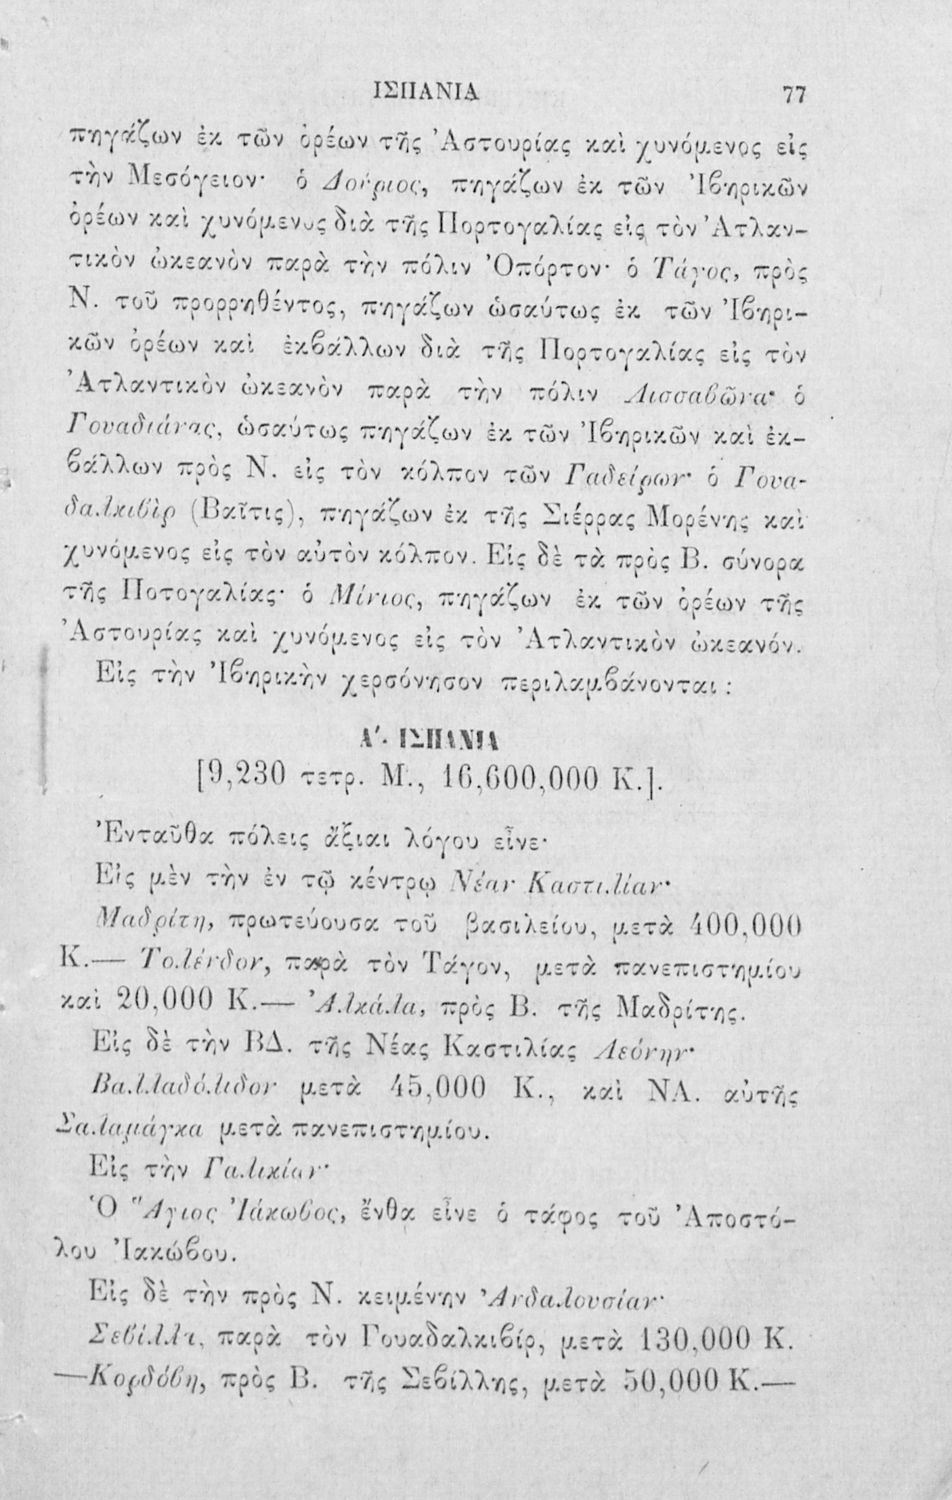 ΙΣΠΑΝΙΑ 77
πηγάζων ἐκ τῶν ὀρέων τῆς Ἀστουρίας καὶ χυνόμενος εἰς
τὴν Μεσόγειον· ὁ Δούριος, πηγάζων ἐκ τῶν Ἰβηρικῶν
ὀρέων καὶ χυνόμενος διὰ τῆς Πορτογαλίας εἰς τὸν Ἀτλαν-
τικὸν ὠκεανὸν παρὰ τὴν πόλιν Ὀπόρτον· ὁ Τάγος, πρὸς
Ν. τοῦ προρρηθέντος, πηγάζων ὡσαύτως ἐκ τῶν Ἰβηρι-
κῶν ὀρέων καὶ ἐκβάλλων διὰ τῆς Πορτογαλίας εἰς τὸν
Ἀτλαντικὸν ὠκεανὸν παρὰ τὴν πόλιν Λισσαβῶνα· ὁ
Γουαδιάνας, ὡσαύτως πηγάζων ἐκ τῶν Ἰβηρικῶν καὶ ἐκ-
βάλλων πρὸς Ν. εἰς τὸν κόλπον τῶν Γαδείρων· ὁ Γουα-
δαλκιβὶρ (Βαῖτις), πηγάζων ἐκ τῆς Σιέρρας Μορένης καὶ
χυνόμενος εἰς τὸν αὐτὸν κόλπον. Εἰς δὲ τὰ πρὸς Β. σύνορα
τῆς Ποτογαλίας· ὁ Μίνιος, πηγάζων ἐκ τῶν ὀρέων τῆς
Ἀστουρίας καὶ χυνόμενος εἰς τὸν Ἀτλαντικὸν ὠκεανόν.
Εἰς τὴν Ἰβηρικὴν χερσόνησον περιλαμβάνονται :
Α΄. ΙΣΠΑΝΙΑ
[9,230 τετρ. Μ., 16,600,000 Κ.].
Ἐνταῦθα πόλεις ἄξιαι λόγου εἶνε·
Εἰς μὲν τὴν ἐν τῷ κέντρῳ Νέαν Καστιλίαν·
Μαδρίτη, πρωτεύουσα τοῦ βασιλείου, μετὰ 400,000
Κ.— Τολένδον, παρὰ τὸν Τάγον, μετὰ πανεπιστημίου
καὶ 20,000 Κ.— Ἀλκάλα, πρὸς Β. τῆς Μαδρίτης.
Εἰς δὲ τὴν ΒΔ. τῆς Νέας Καστιλίας Λεόνην·
Βαλλαδόλιδον μετὰ 45,000 Κ., καὶ ΝΑ. αὐτῆς
Σαλαμάγκα μετὰ πανεπιστημίου.
Εἰς τὴν Γαλικίαν·
Ὁ Ἅγιος Ἰάκωβος, ἔνθα εἶνε ὁ τάφος τοῦ Ἀποστό-
λου Ἰακώβου.
Εἰς δὲ τὴν πρὸς Ν. κειμένην Ἀνδαλουσίαν·
Σεβίλλη, παρὰ τὸν Γουαδαλκιβίρ, μετὰ 130,000 Κ.
—Κορδόβη, πρὸς Β. τῆς Σεβίλλης, μετὰ 50,000 Κ.—